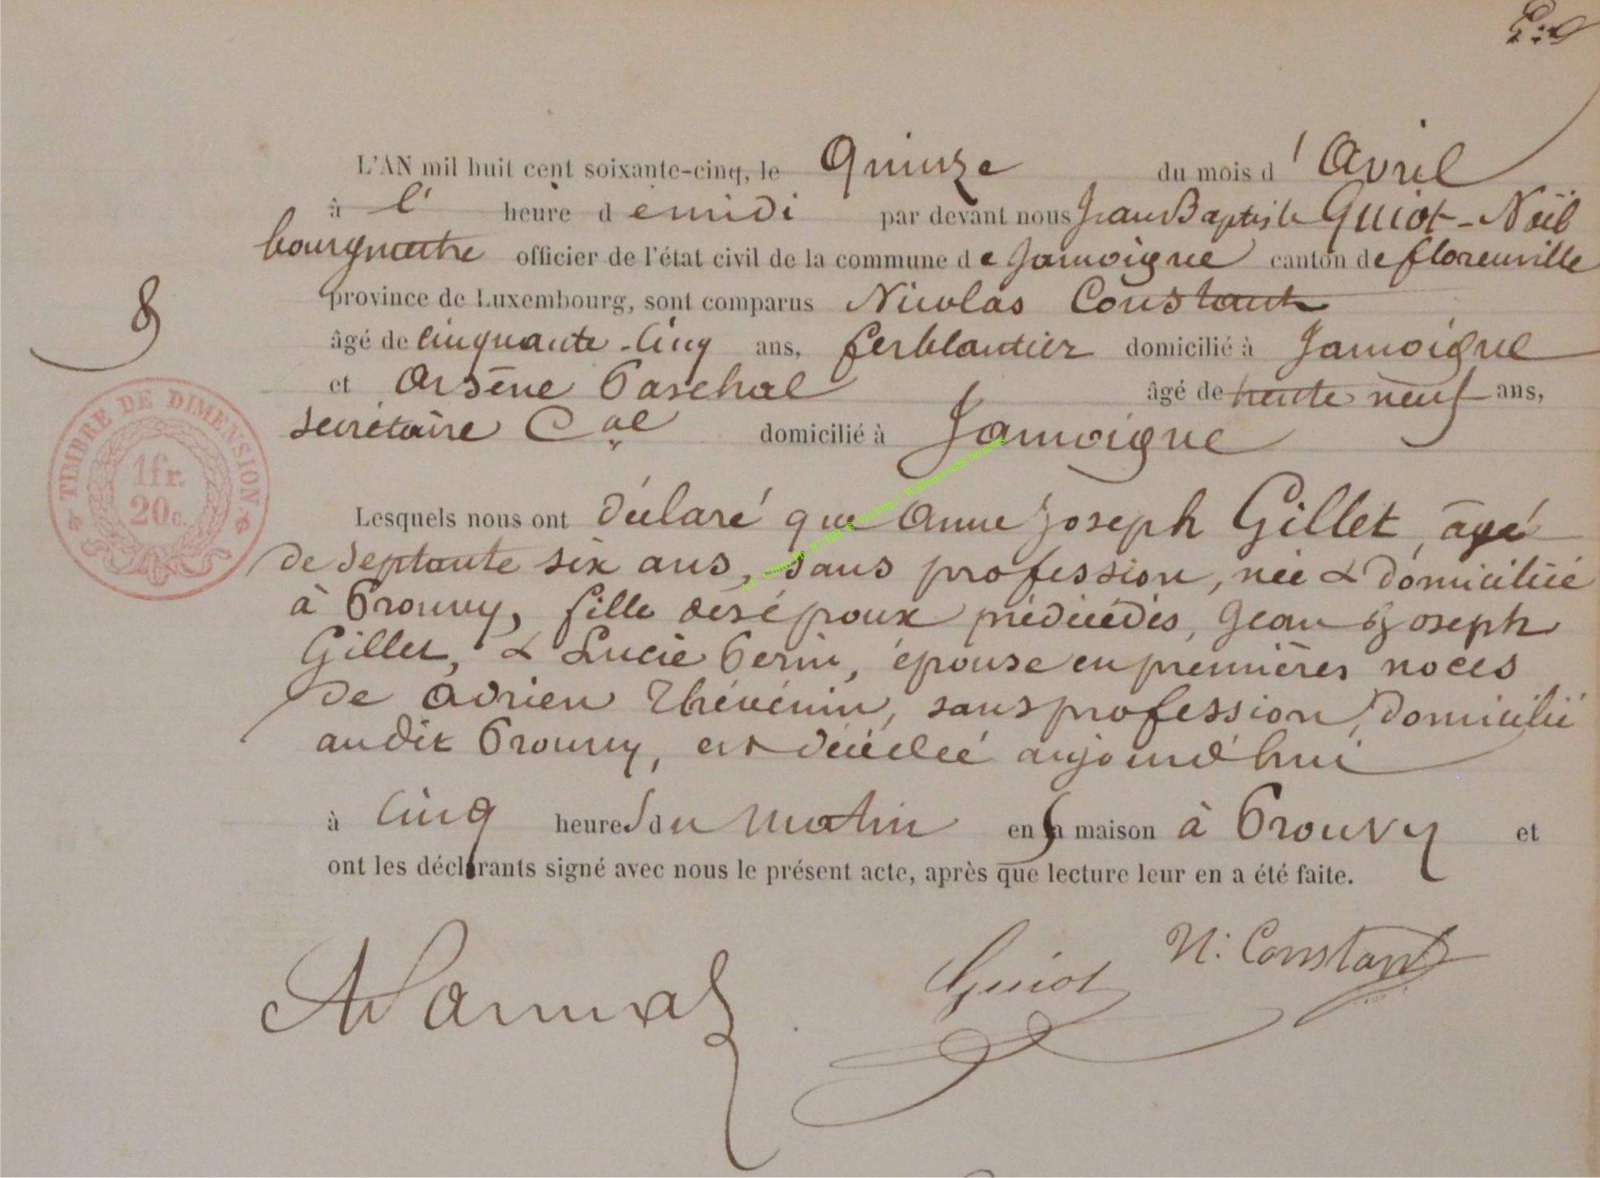 L'AN mil huit cent soixante-cinq, le Quinze du mois d'Avril
à l' heure de midi par devant nous Jean Baptiste Guiot-Noël
bourgmestre officier de l'état civil de la commune de Jamoigne canton de florenville
province de Luxembourg, sont comparus Nicolas Constant
8
âgé de cinquante-cinq ans, ferblantier domicilié à Jamoigne
et Arsène Paschal âgé de trente neuf ans,
secrétaire Cal domicilié à Jamoigne
TIMBRE DE DIMENSION
1fr.
20c.
Lesquels nous ont déclaré que Anne Joseph Gillet, âgé
de septante six ans, sans profession, née & domiciliée
à Prouvy, fille des époux prédécédés, Jean Joseph
Gillet, & Lucie Perin, épouse en premières noces
de Adrien Thévénin, sans profession, domicilié
audit Prouvy, est décédée aujourd'hui
à cinq heures du matin en sa maison à Prouvy et
ont les déclarants signé avec nous le présent acte, après que lecture leur en a été faite.
Guiot N: Constant